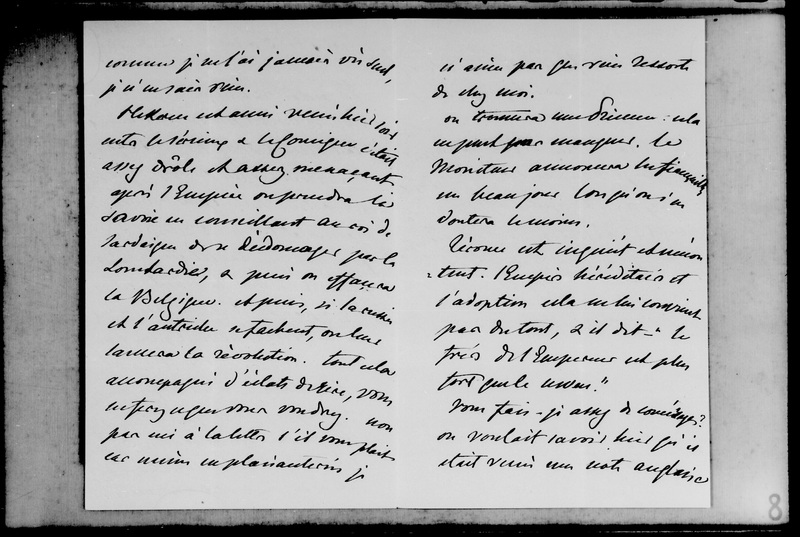 comme je ne l'ai jamais vu seul,
je n'en sais rien.
et aussi venu hier soir
entre le sérieux & le comique c'était
assez drôle et assez menaçant
après l'Empire on prendra la
Savoie en conseillant au roi de
Sardaigne de se dédomager par la
Lombardie, & puis on effacera
la Belgique. et puis, si la russie
et l'autriche se fachent, on leur
lancera la révolution. tout cela
accompagné d'éclats de rire, vous
en ferez ce que vous voudrez. non
pas mis à la lettre s'il vous plait
car même en plaisanteries je
n'aime pas que rien ressorte
de chez moi.
on trouvera une Princesse: cela
ne peut pas manquer. le
Moniteur annoncera les fiançailles
un beau jour lorsqu'on s'en
doutera le moins.
Jérome est inquiet et mécon
-tent. l'Empire héréditaire et
l'adoption cela ne lui convient
pas du tout, & il dit - " le
frère de l'Empereur est plus
fort que le neveu."
Vous fais-je assez de comérages?
on voulait savoir hier qu'il
était venu une note anglaise
8